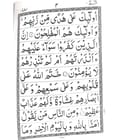 ٣
أُولَٰئِكَ عَلَىٰ هُدًى مِّن رَّبِّهِمْ
وَأُولَٰئِكَ هُمُ الْمُفْلِحُونَ إِنَّ
الَّذِينَ كَفَرُوا سَوَاءٌ عَلَيْهِمْ
ءَأَنذَرْتَهُمْ أَمْ لَمْ تُنذِرْهُمْ
لَا يُؤْمِنُونَ خَتَمَ اللَّهُ عَلَىٰ
قُلُوبِهِمْ وَعَلَىٰ سَمْعِهِمْ وَعَلَىٰ
أَبْصَارِهِمْ غِشَاوَةٌ وَلَهُمْ عَذَابٌ
عَظِيمٌ وَمِنَ النَّاسِ مَن